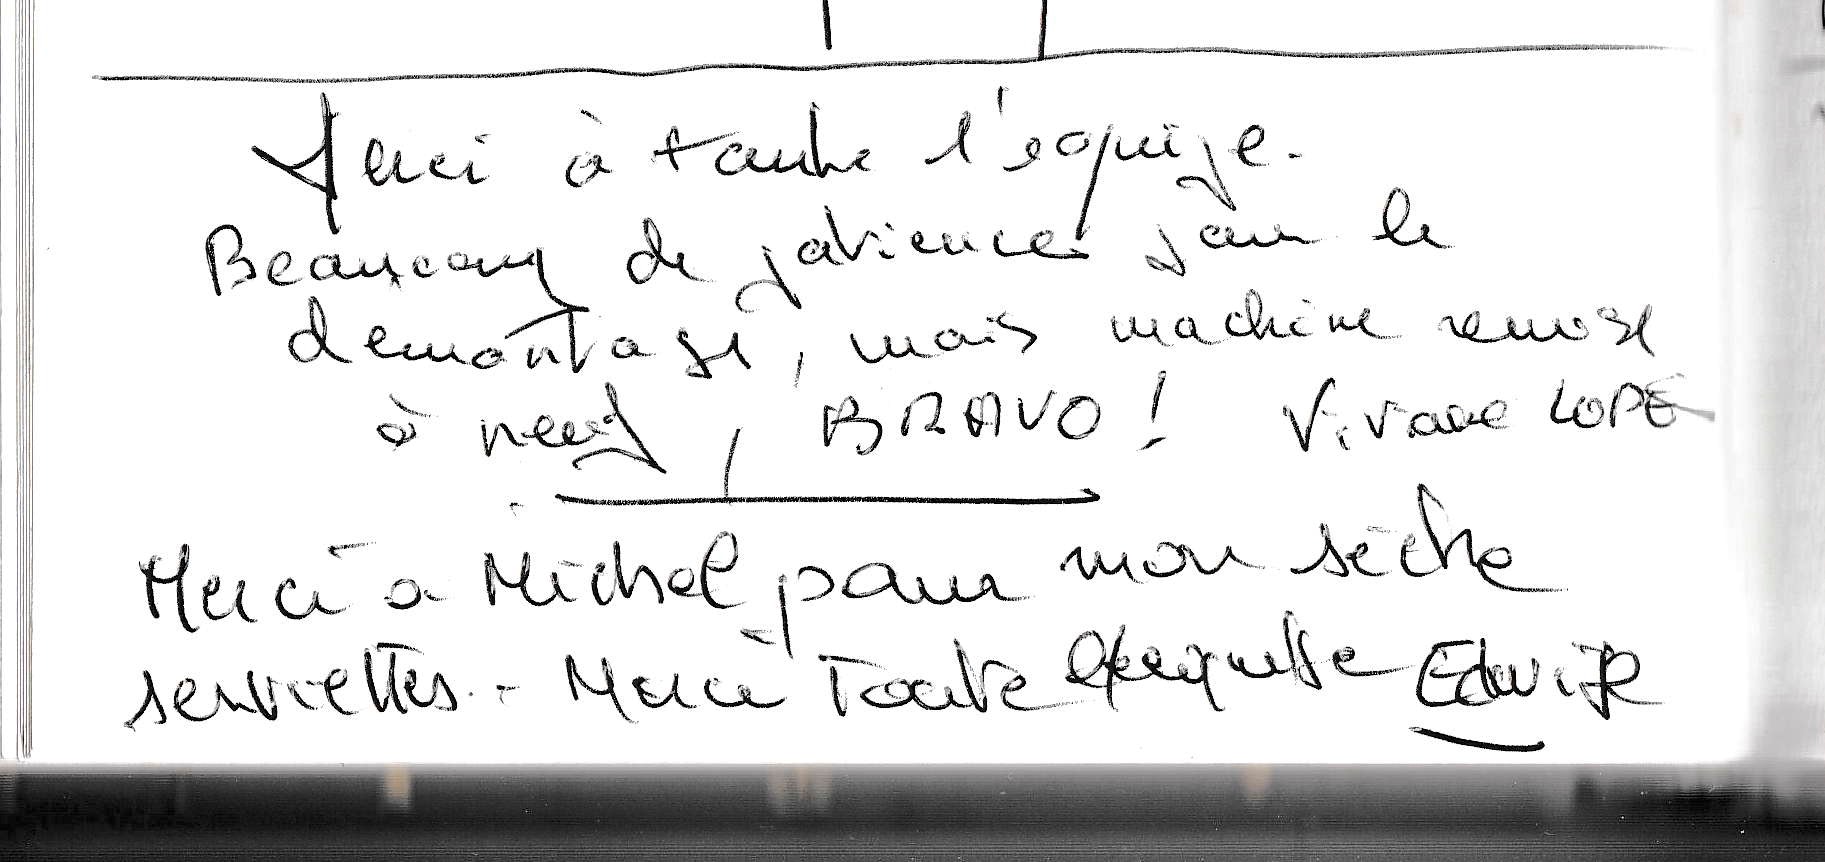 Merci à toute l'équipe.
Beaucoup de patience pour le
démontage, mais machine remise
à neuf, BRAVO ! Vivave LOPE
Merci à Michel pour mon sèche
serviettes. - Merci à Toute l'équipe Edwige